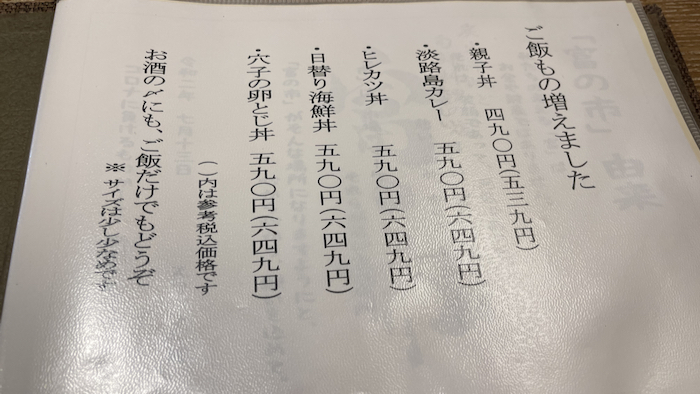 ご飯もの増えました
・親子丼 四九〇円(五三九円)
・淡路島カレー 五九〇円(六四九円)
・ヒレカツ丼 五九〇円(六四九円)
・日替り海鮮丼 五九〇円(六四九円)
・穴子の卵とじ丼 五九〇円(六四九円)
( )内は参考税込価格です
お酒の〆にも、ご飯だけでもどうぞ
※サイズは少し少なめです